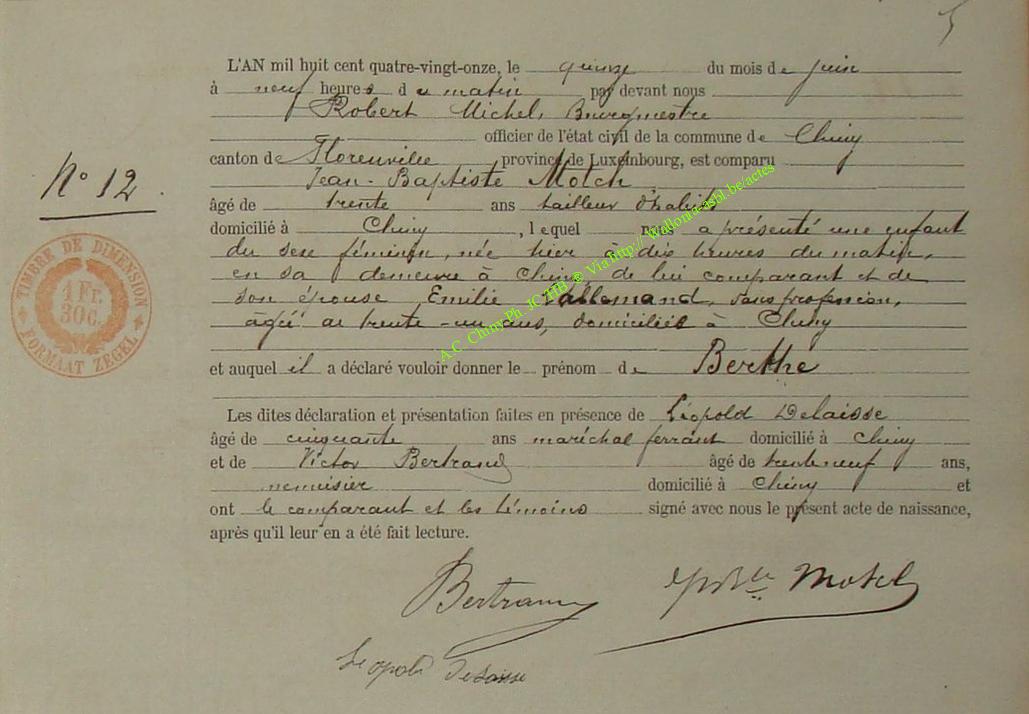 5
L'AN mil huit cent quatre-vingt-onze, le quinze du mois de juin
à neuf heures du matin par devant nous
Robert Michel, Bourgmestre
officier de l'état civil de la commune de Chiny
canton de Florenville province de Luxembourg, est comparu
Jean-Baptiste Motch,
âgé de trente ans tailleur d'habits
domicilié à Chiny, lequel nous a présenté une enfant
du sexe féminin, née hier à dix heures du matin,
en sa demeure à Chiny de lui comparant et de
son épouse Emilie Lallemand, sans profession,
âgée de trente-un ans, domiciliée à Chiny
et auquel il a déclaré vouloir donner le prénom de Berthe
Les dites déclaration et présentation faites en présence de Léopold Delaisse
âgé de cinquante ans maréchal ferrant domicilié à Chiny
et de Victor Bertrand âgé de trente neuf ans,
menuisier domicilié à Chiny et
ont le comparant et les témoins signé avec nous le présent acte de naissance,
après qu'il leur en a été fait lecture.
N° 12
TIMBRE DE DIMENSION
1 Fr.
30 C.
FORMAAT ZEGEL
A.C. Chiny Ph. JC HB © Via http:// Wallonia-asbl.be/actes
Bertrand
Motch
Léopold Delaisse